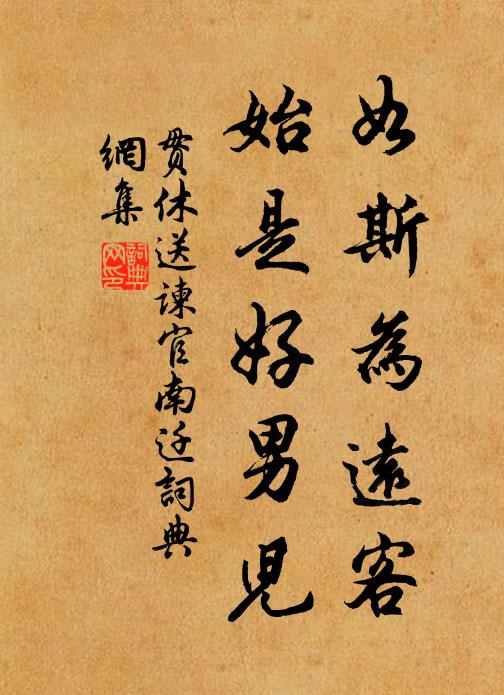 如斯為遠客
始是好男兒
貫休送諫官南迁詞典
網集
詞典
网印